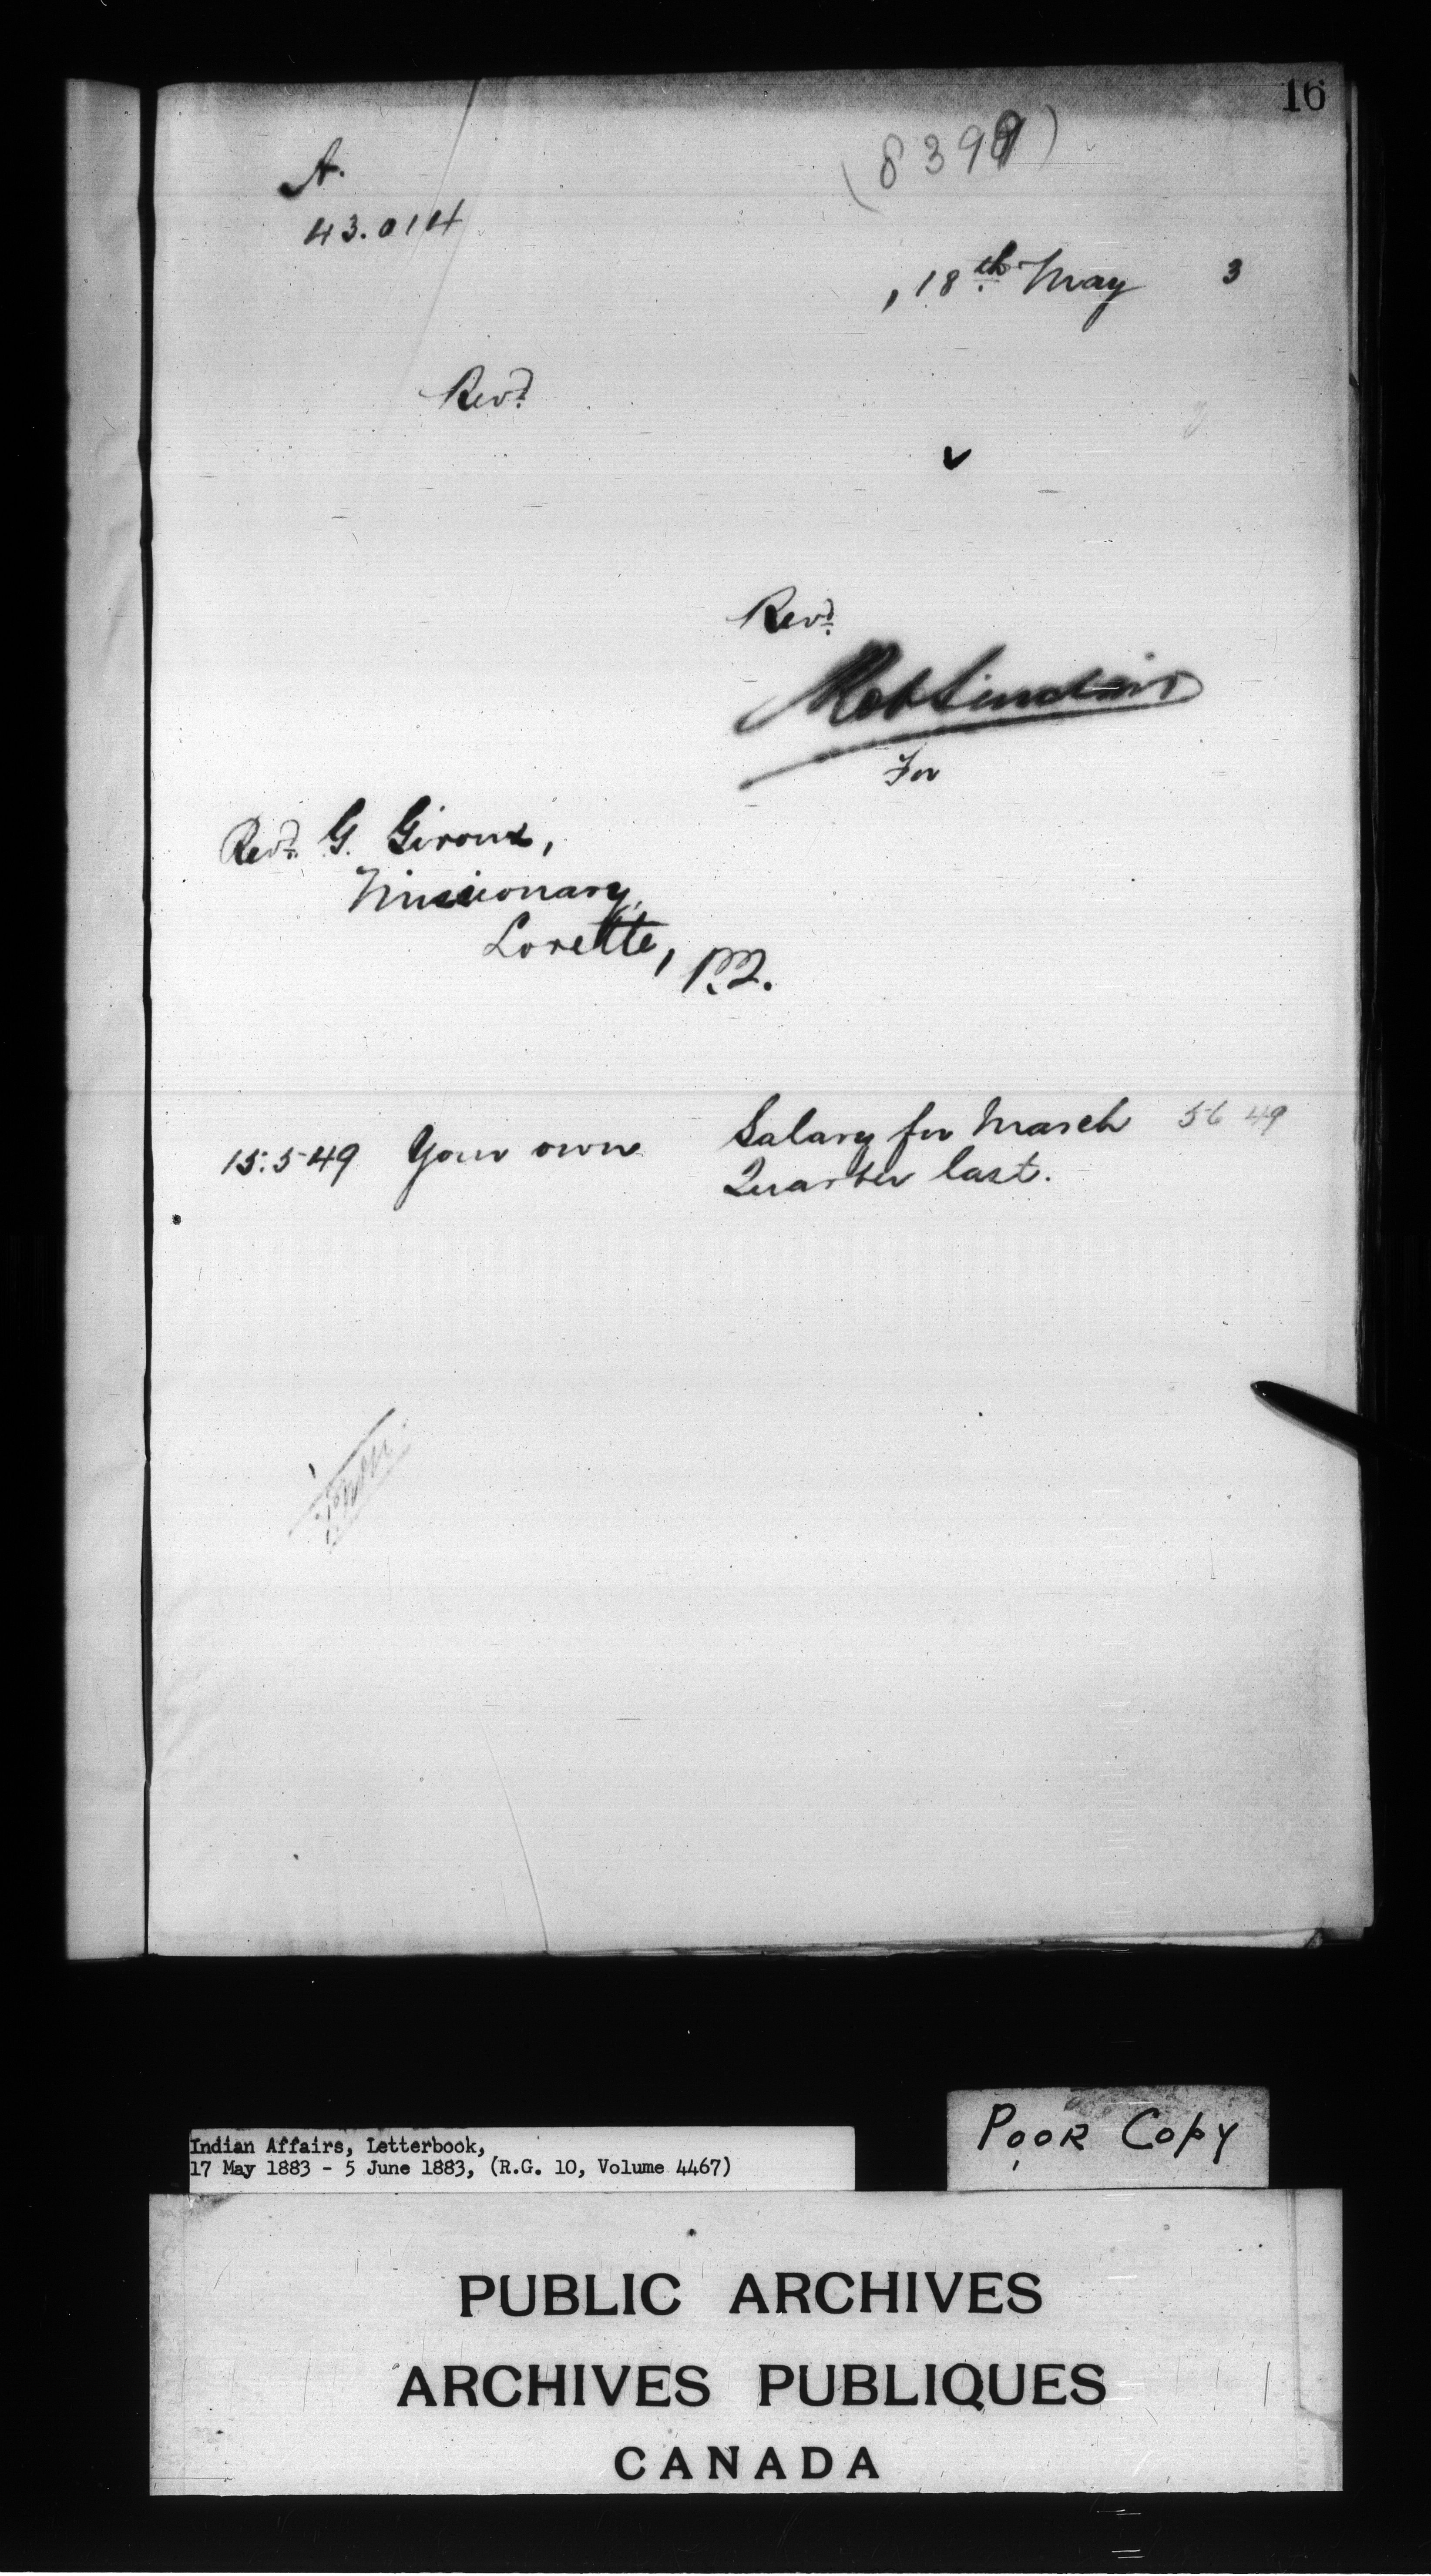 16
A.
43.014
, 18th May 3
Revd.
Revd.
Rob Sinclair
For
Revd. G. Giroux,
Missionary,
Lorette, P.Q.
15.549 Your own Salary for March 56 49
Quarter last.
Indian Affairs, Letterbook,
17 May 1883 - 5 June 1883, (R.G. 10, Volume 4467)
POOR COPY
PUBLIC ARCHIVES
ARCHIVES PUBLIQUES
CANADA